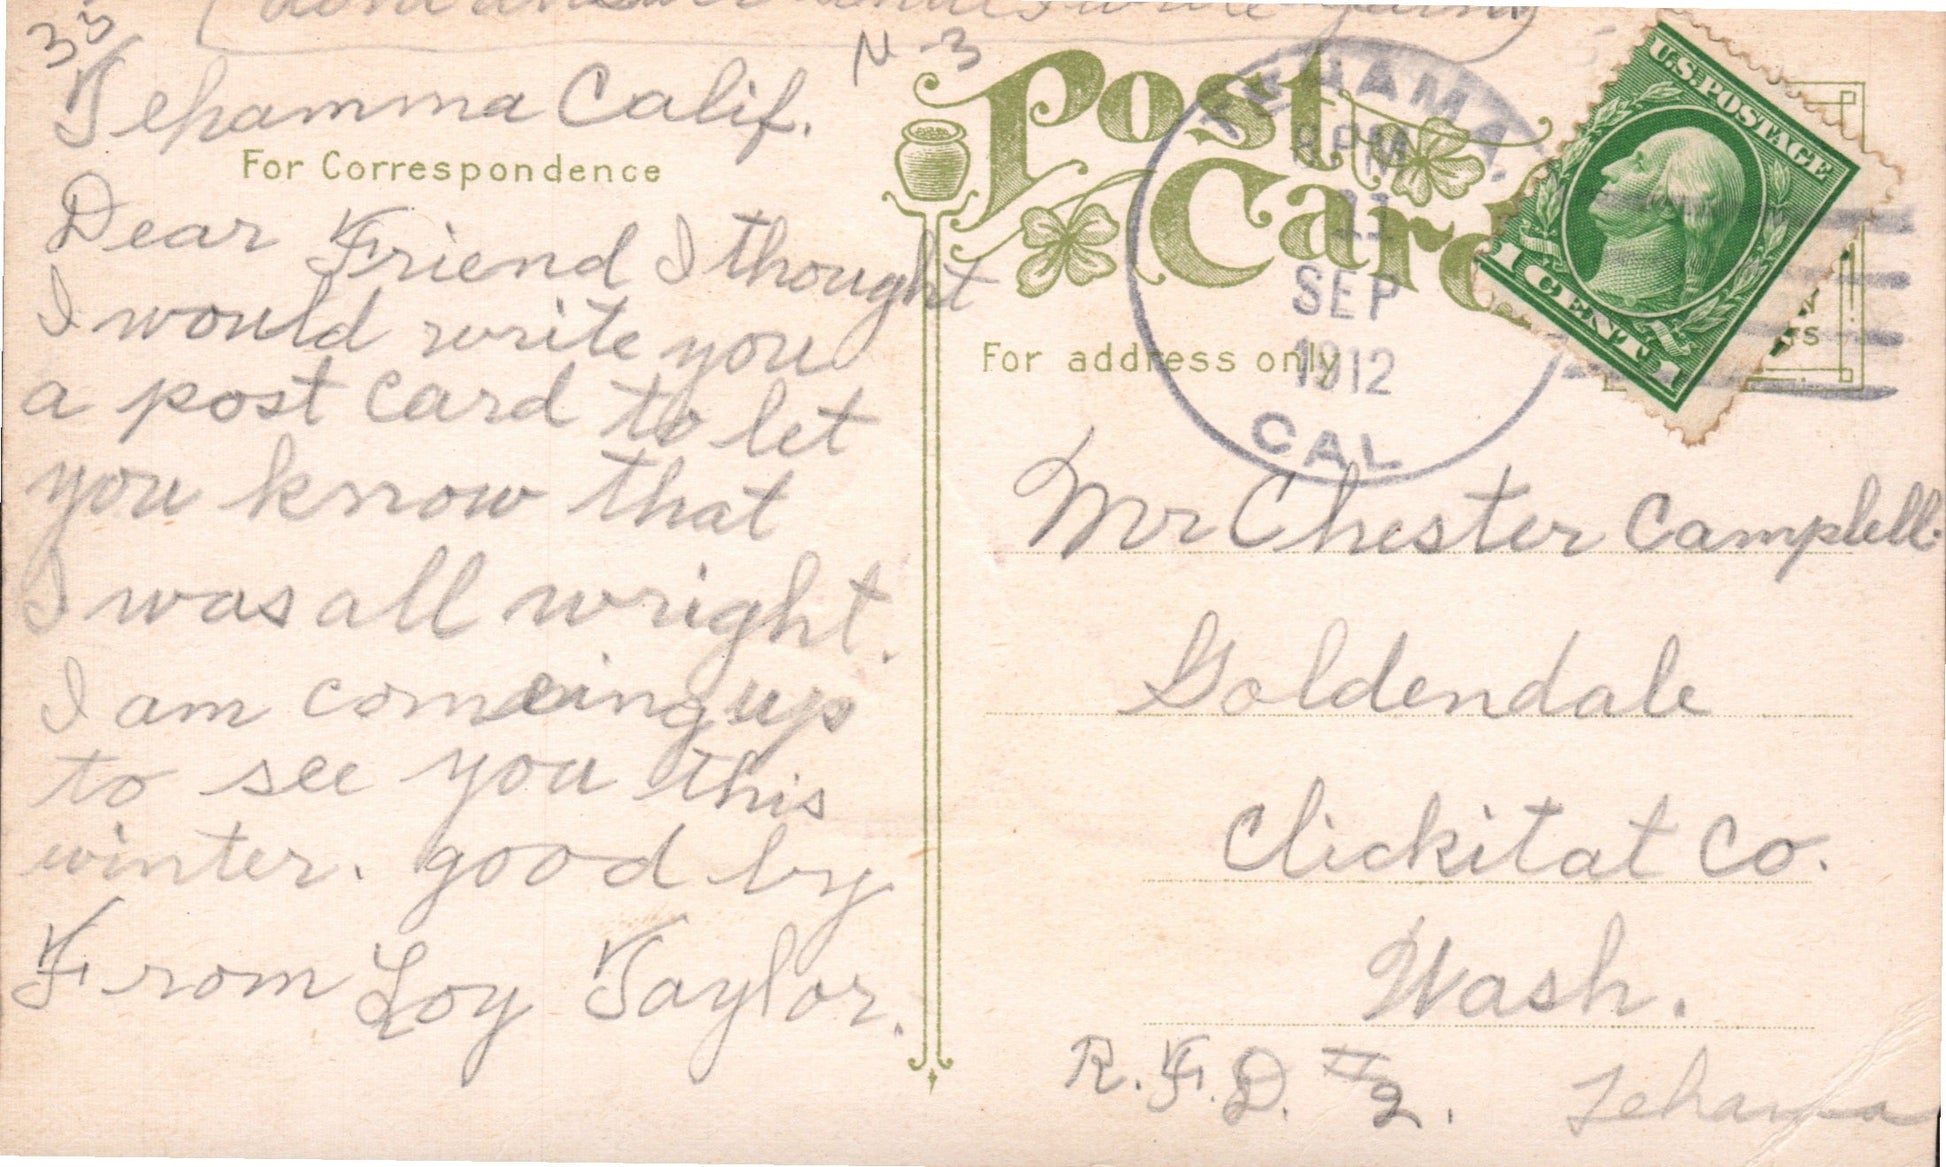 write
35
N-3
Tehamma Calif.
For Correspondence
Dear Friend I thought
I would write you
a post card to let
you know that
I was all wright.
I am comeing up
to see you this
winter. good by
From Loy Taylor.
Post Card
For address only
TEHAMA.
8PM
11
SEP
1912
CAL
U.S. POSTAGE
1 CENT 1
Mr Chester Campbell.
Goldendale
Clickitat Co.
Wash.
R.F.D. #2.
Tehama